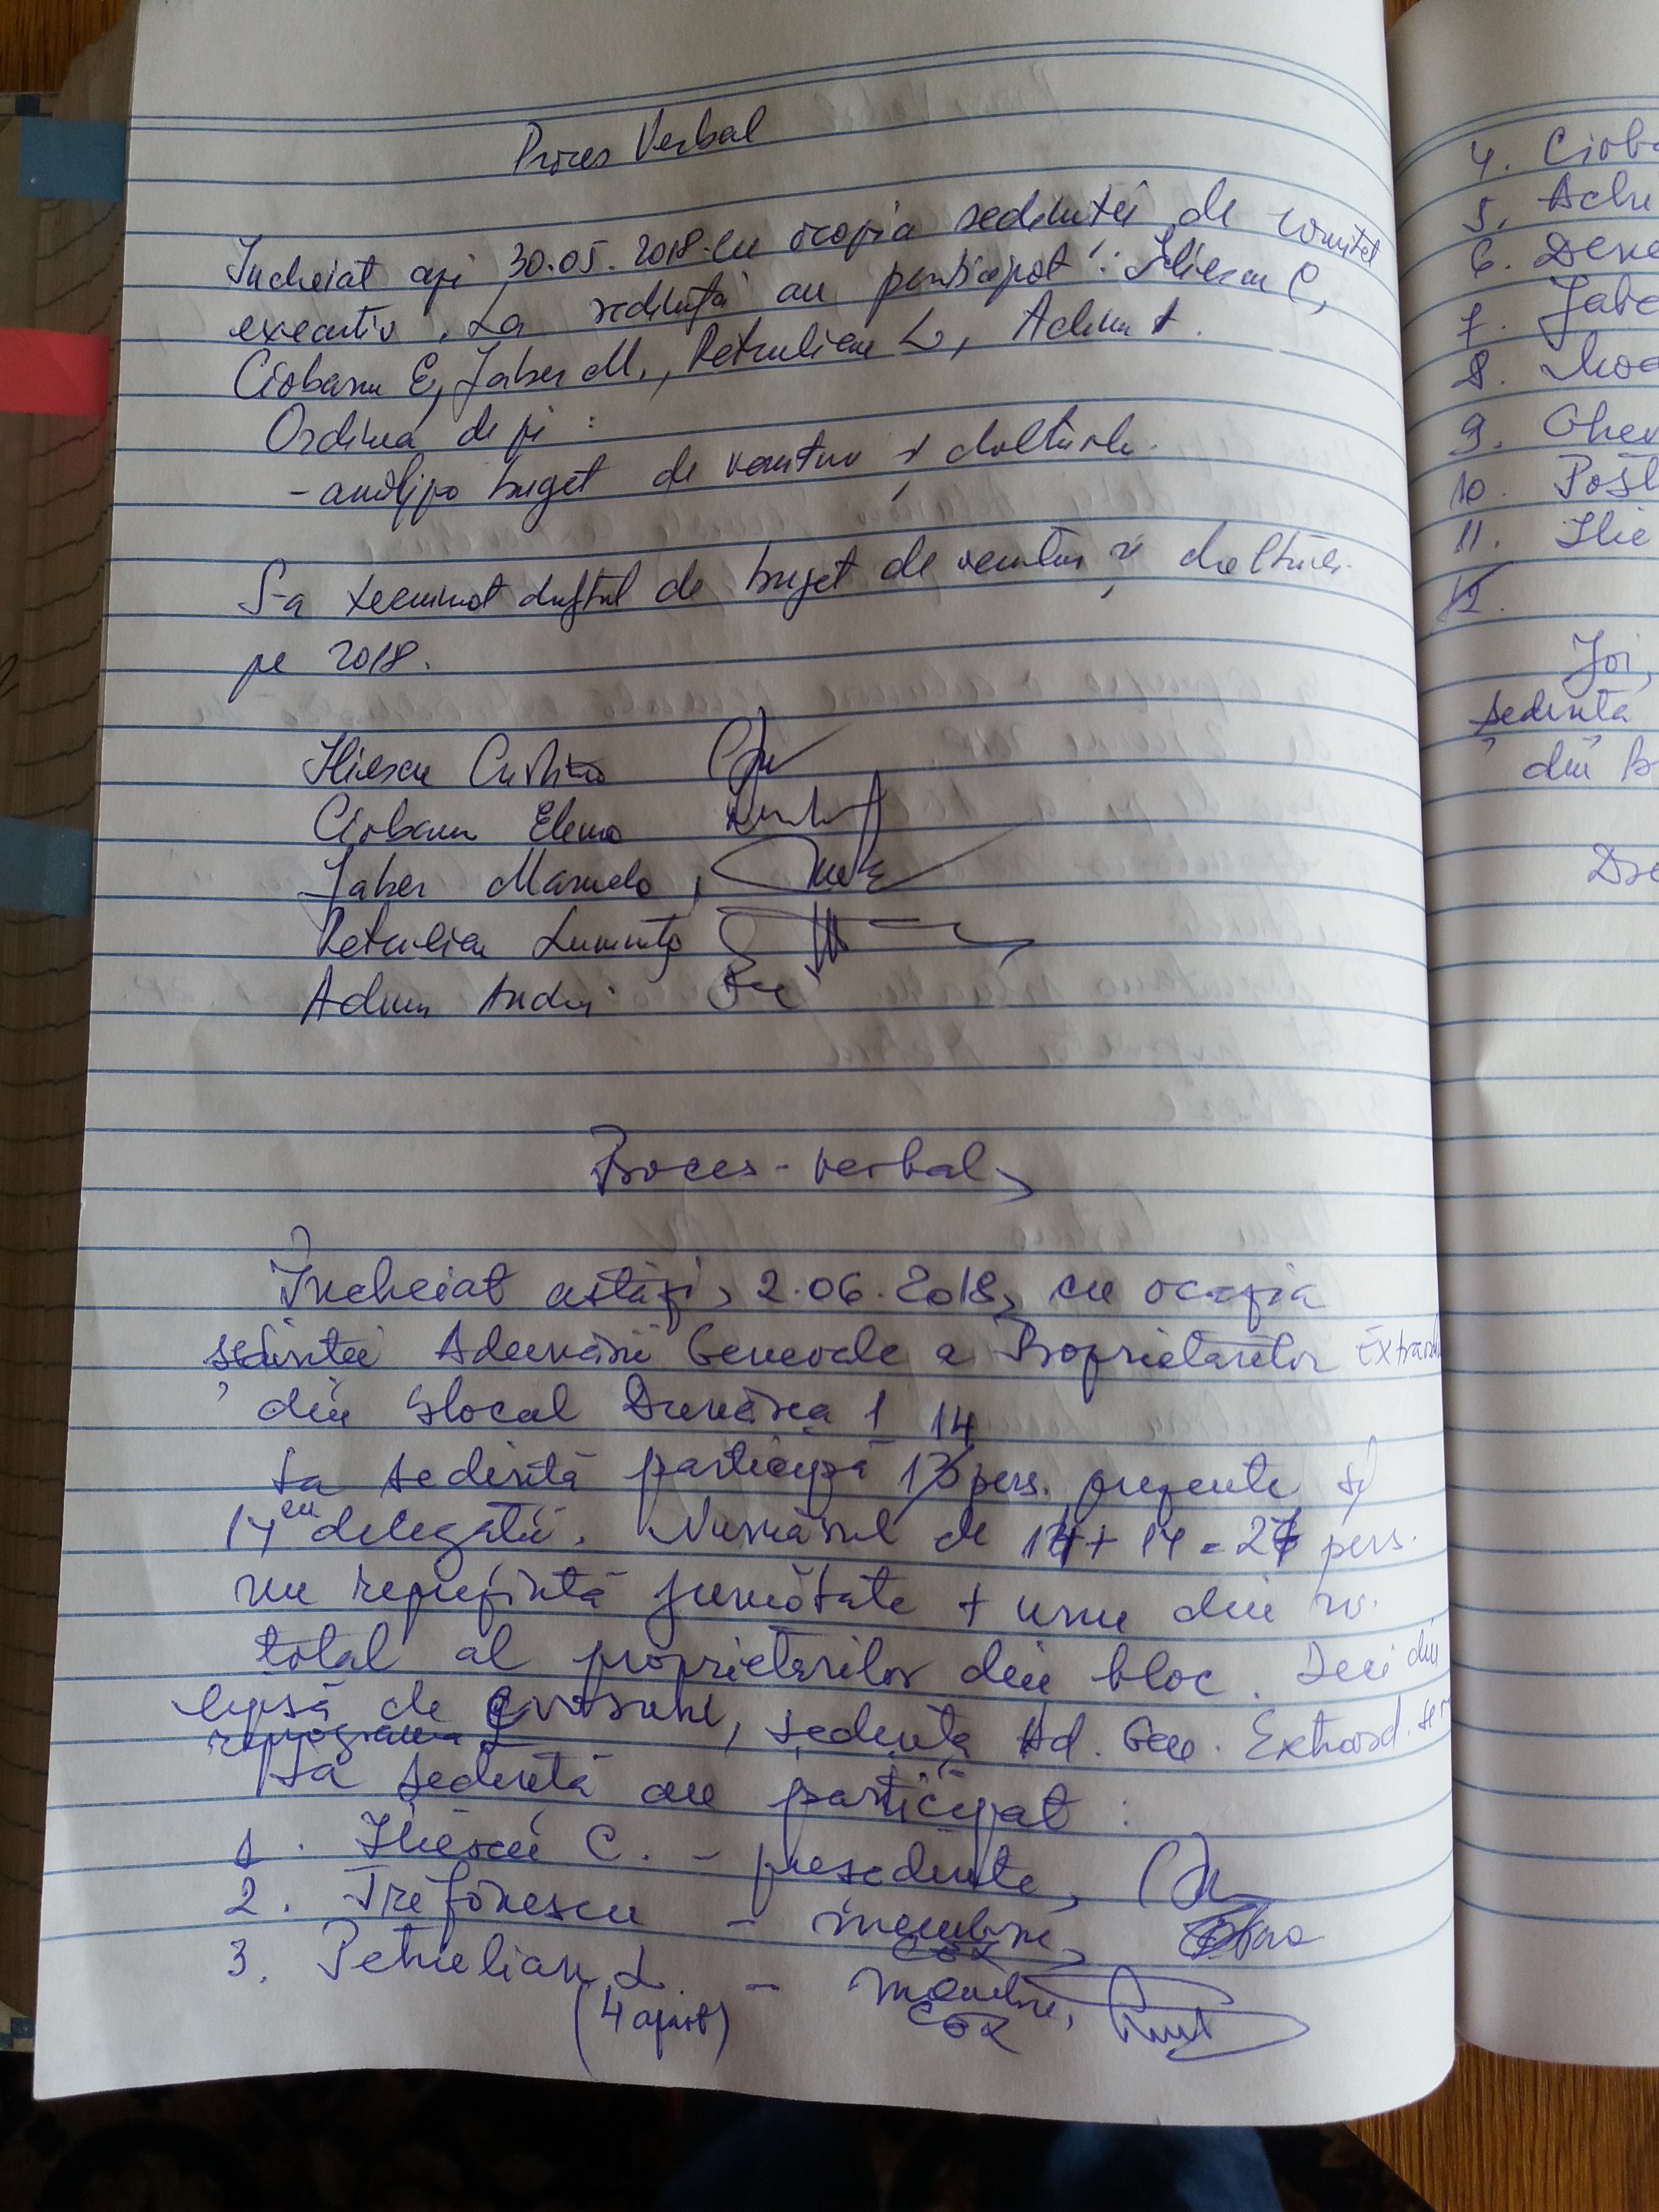 Proces Verbal
Încheiat azi 30.05.2018 cu ocazia sedintei de comitet
executiv. La sedința au participat: Iliescu C,
Ciobanu E, Jaber M., Petrulian L, Adam A.
Ordinea de zi:
- analiza buget de venituri și cheltuieli.
S-a terminat draftul de buget de venituri și cheltuieli
pe 2018.
Iliescu
Ciobanu Elena
Jaber Manuela,
Petrulian Luminița
Andrei
Proces-verbal,
Încheiat astăzi, 2.06.2018, cu ocazia
ședinței Adunării Generale a Proprietarilor
din blocul Dunărea 1
14
La ședință participă 13 pers. prezente și
14 cu delegații. Numărul de 14 + 14 = 27 pers.
nu reprezintă jumătate + unu din nr.
total al proprietarilor din bloc. Deci din
lipsă de cvorum, ședința Ad. Gen. Extraord. se
reprograma
La ședință au participat:
1. Iliescu C. - președinte,
2. Trefonescu - membru,
3. Petrulian L. - membru,
(4 apart)
4. Ciob
5.
6.
7. Jabe
8.
9. Gher
10. Post
11. Ilie
12.
Joi,
ședință
din B